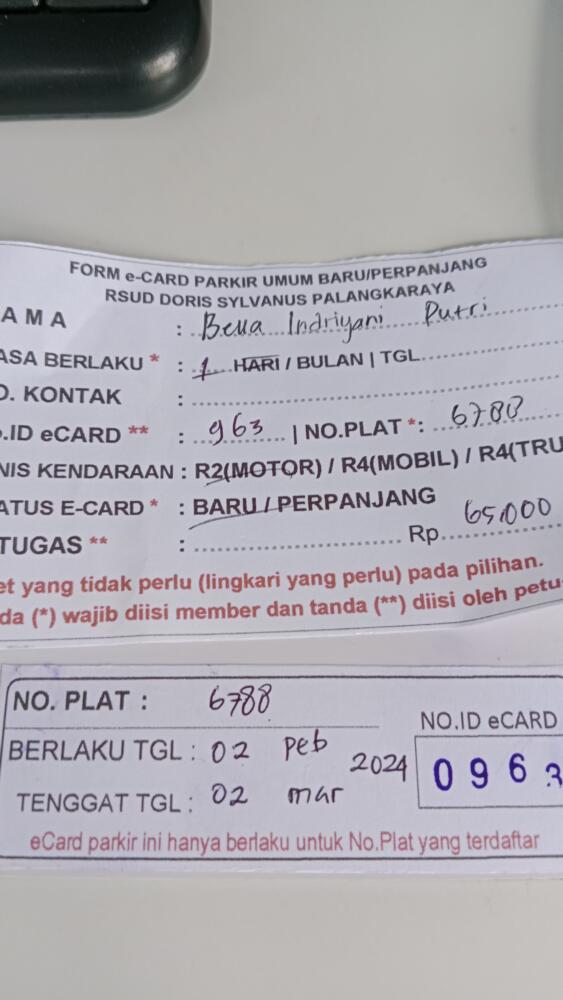 FORM e-CARD PARKIR UMUM BARU/PERPANJANG
RSUD DORIS SYLVANUS PALANGKARAYA
AMA : Bella Indriyani Putri
ASA BERLAKU * : 1 HARI / BULAN | TGL
O. KONTAK :
.ID eCARD ** : 963 | NO.PLAT *: 6788
NIS KENDARAAN : R2(MOTOR) / R4(MOBIL) / R4(TRU
ATUS E-CARD * : BARU / PERPANJANG
TUGAS ** : Rp 65.000
et yang tidak perlu (lingkari yang perlu) pada pilihan.
da (*) wajib diisi member dan tanda (**) diisi oleh petu
NO. PLAT : 6788
NO.ID eCARD
BERLAKU TGL : 02 peb 2024
0963
TENGGAT TGL : 02 mar
eCard parkir ini hanya berlaku untuk No.Plat yang terdaftar